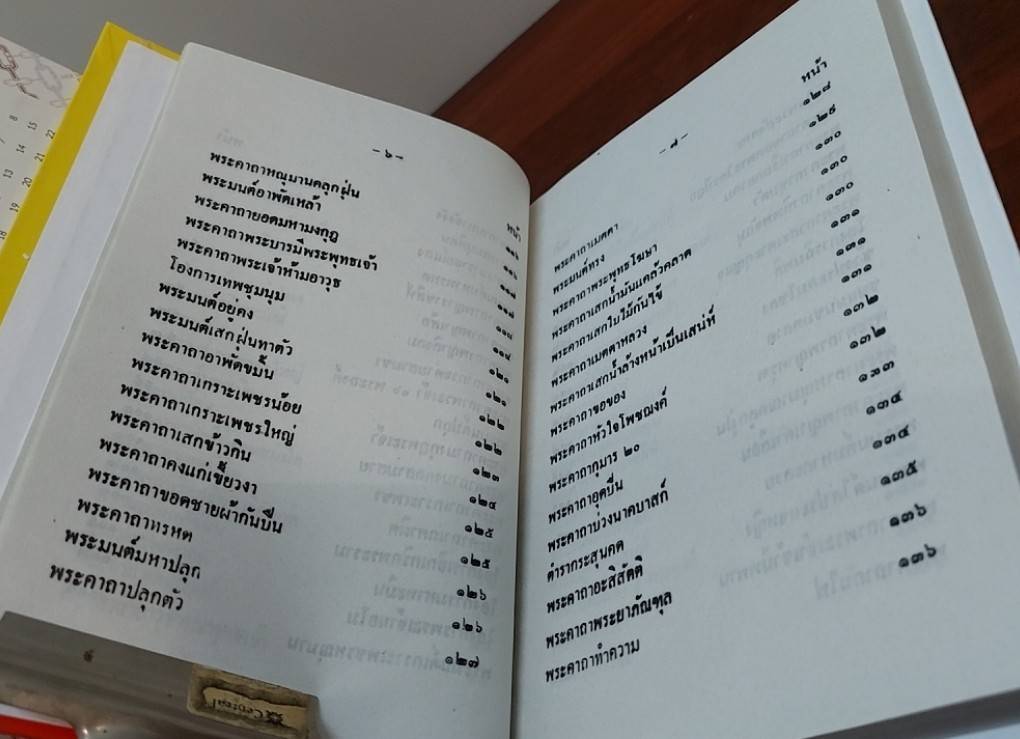 -๖-
หน้า
พระคาถาหณุมานคลุกฝุ่น ๑๑๖
พระมนต์อาพัดเหล้า ๑๑๖
พระคาถายอดมหามงกุฎ ๑๑๗
พระคาถาพระบารมีพระพุทธเจ้า ๑๑๘
พระคาถาพระเจ้าห้ามอาวุธ ๑๑๙
โองการเทพชุมนุม ๑๑๙
พระมนต์อยู่คง ๑๒๑
พระมนต์เสกฝุ่นทาตัว ๑๒๑
พระคาถาอาพัดขมิ้น ๑๒๒
พระคาถาเกราะเพชรน้อย ๑๒๒
พระคาถาเกราะเพชรใหญ่ ๑๒๓
พระคาถาเสกข้าวกิน ๑๒๔
พระคาถาคงแก่เขี้ยวงา ๑๒๕
พระคาถาขอดชายผ้ากันปืน ๑๒๕
พระคาถาทรหด ๑๒๖
พระมนต์มหาปลุก ๑๒๖
พระคาถาปลุกตัว ๑๒๗
-๗-
หน้า
พระคาถาเมตตา ๑๒๘
พระมนต์ทรง ๑๒๙
พระคาถาพระพุทธโฆษา ๑๓๐
พระคาถาเสกน้ำมันแคล้วคลาด ๑๓๐
พระคาถาเสกใบไม้กันไข้ ๑๓๐
พระคาถาเมตตาหลวง ๑๓๑
พระคาถาเสกน้ำล้างหน้าเป็นเสน่ห์ ๑๓๑
พระคาถาขอของ ๑๓๑
พระคาถาหัวใจโพชฌงค์ ๑๓๒
พระคาถากุมาร ๒๐ ๑๓๒
พระคาถาอุดปืน ๑๓๓
พระคาถาบ่วงนาคบาสก์ ๑๓๔
ตำรากระสุนคด ๑๓๔
พระคาถาอะสิสัตติ ๑๓๕
พระคาถาพระยาภัณฑุล ๑๓๖
พระคาถาทำความ ๑๓๖
Central